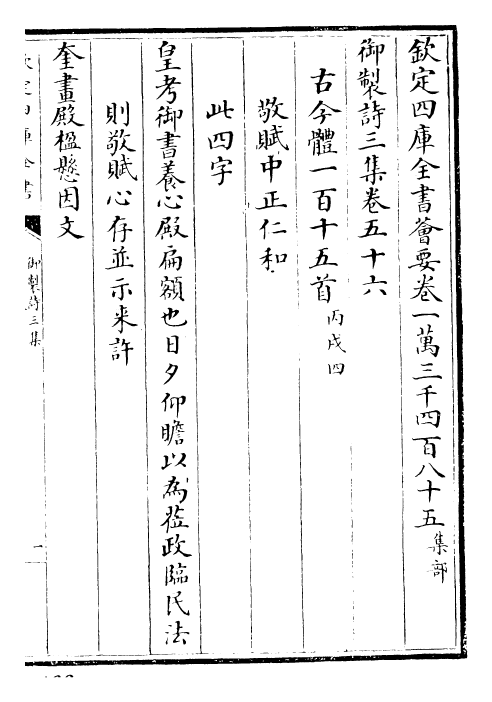 欽定四庫全書薈要卷一萬三千四百八十五集部
御製詩三集卷五十六
古今體一百十五首丙戌四
敬賦中正仁和
此四字
皇考御書養心殿扁額也日夕仰瞻以為莅政臨民法
則敬賦心存並示来許
奎畫殿楹懸因文
御製詩三集
一